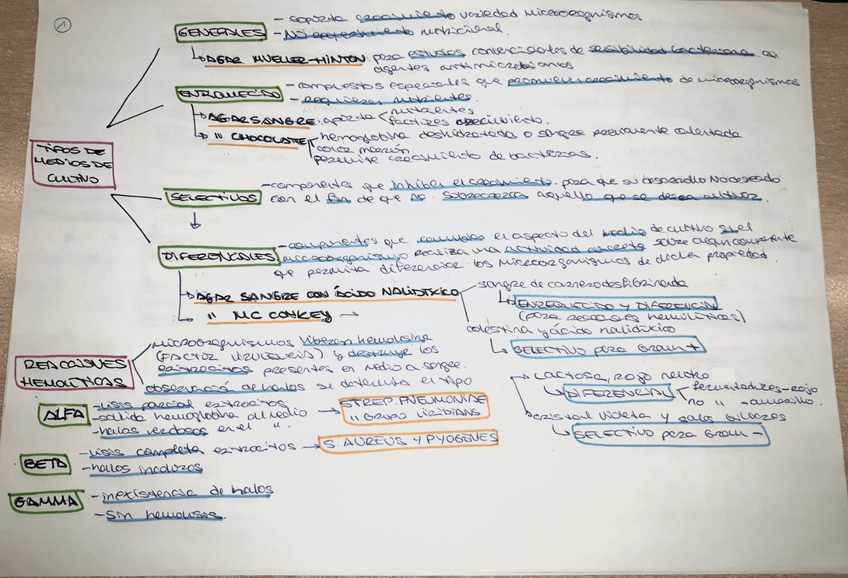 1
GENERALES
- soporta crecimiento variedad microorganismos
- No requerimiento nutricional.
AGAR MUELLER-HINTON: para estudios convencionales de sensibilidad bacteriana a
agentes antimicrobianos
ENRIQUECIDO
- compuestos especiales que promueven crecimiento de microorganismos
- requieren nutrientes.
AGAR SANGRE: aporta nutrientes
factores crecimiento.
" CHOCOLATE hemoglobina deshidratada o sangre previamente calentada
color marrón
permite crecimiento de bacterias.
TIPOS DE
MEDIOS DE
CULTIVO
SELECTIVOS
- componentes que inhiben el crecimiento para que su desarrollo no deseado
con el fin de que no sobrecrezca aquello que se desea cultivar.
DIFERENCIALES
- componentes que cambian el aspecto del medio de cultivo si el
microorganismo realiza una actividad concreta sobre algún componente
que permita diferenciar los microorganismos de dicha propiedad.
AGAR SANGRE CON ÁCIDO NALIDÍXICO
sangre de carnero desfibrinada
ENRIQUECIDO Y DIFERENCIAL
(para reacciones hemolíticas)
colestina y ácido nalidíxico
SELECTIVO para Gram +
" MC CONKEY
Lactosa, rojo neutro
DIFERENCIAL fermentadores - rojo
no " - amarillo.
cristal violeta y sales biliares
SELECTIVO para Gram -
REACCIONES
HEMOLÍTICAS
microorganismos liberan hemolisina
(FACTOR VIRULENCIA) y destruye los
eritrocitos presentes en medio a sangre.
observación de halos se determina el tipo
ALFA
- lisis parcial eritrocitos
- salida hemoglobina al medio
- halos verdosos en el ".
STREP. PNEUMONIAE
" GRUPO VIRIDIANS
BETA
- lisis completa eritrocitos
- halos incoloros
S. AUREUS Y PYOGENES
GAMMA
- inexistencia de halos
- Sin hemolisis.